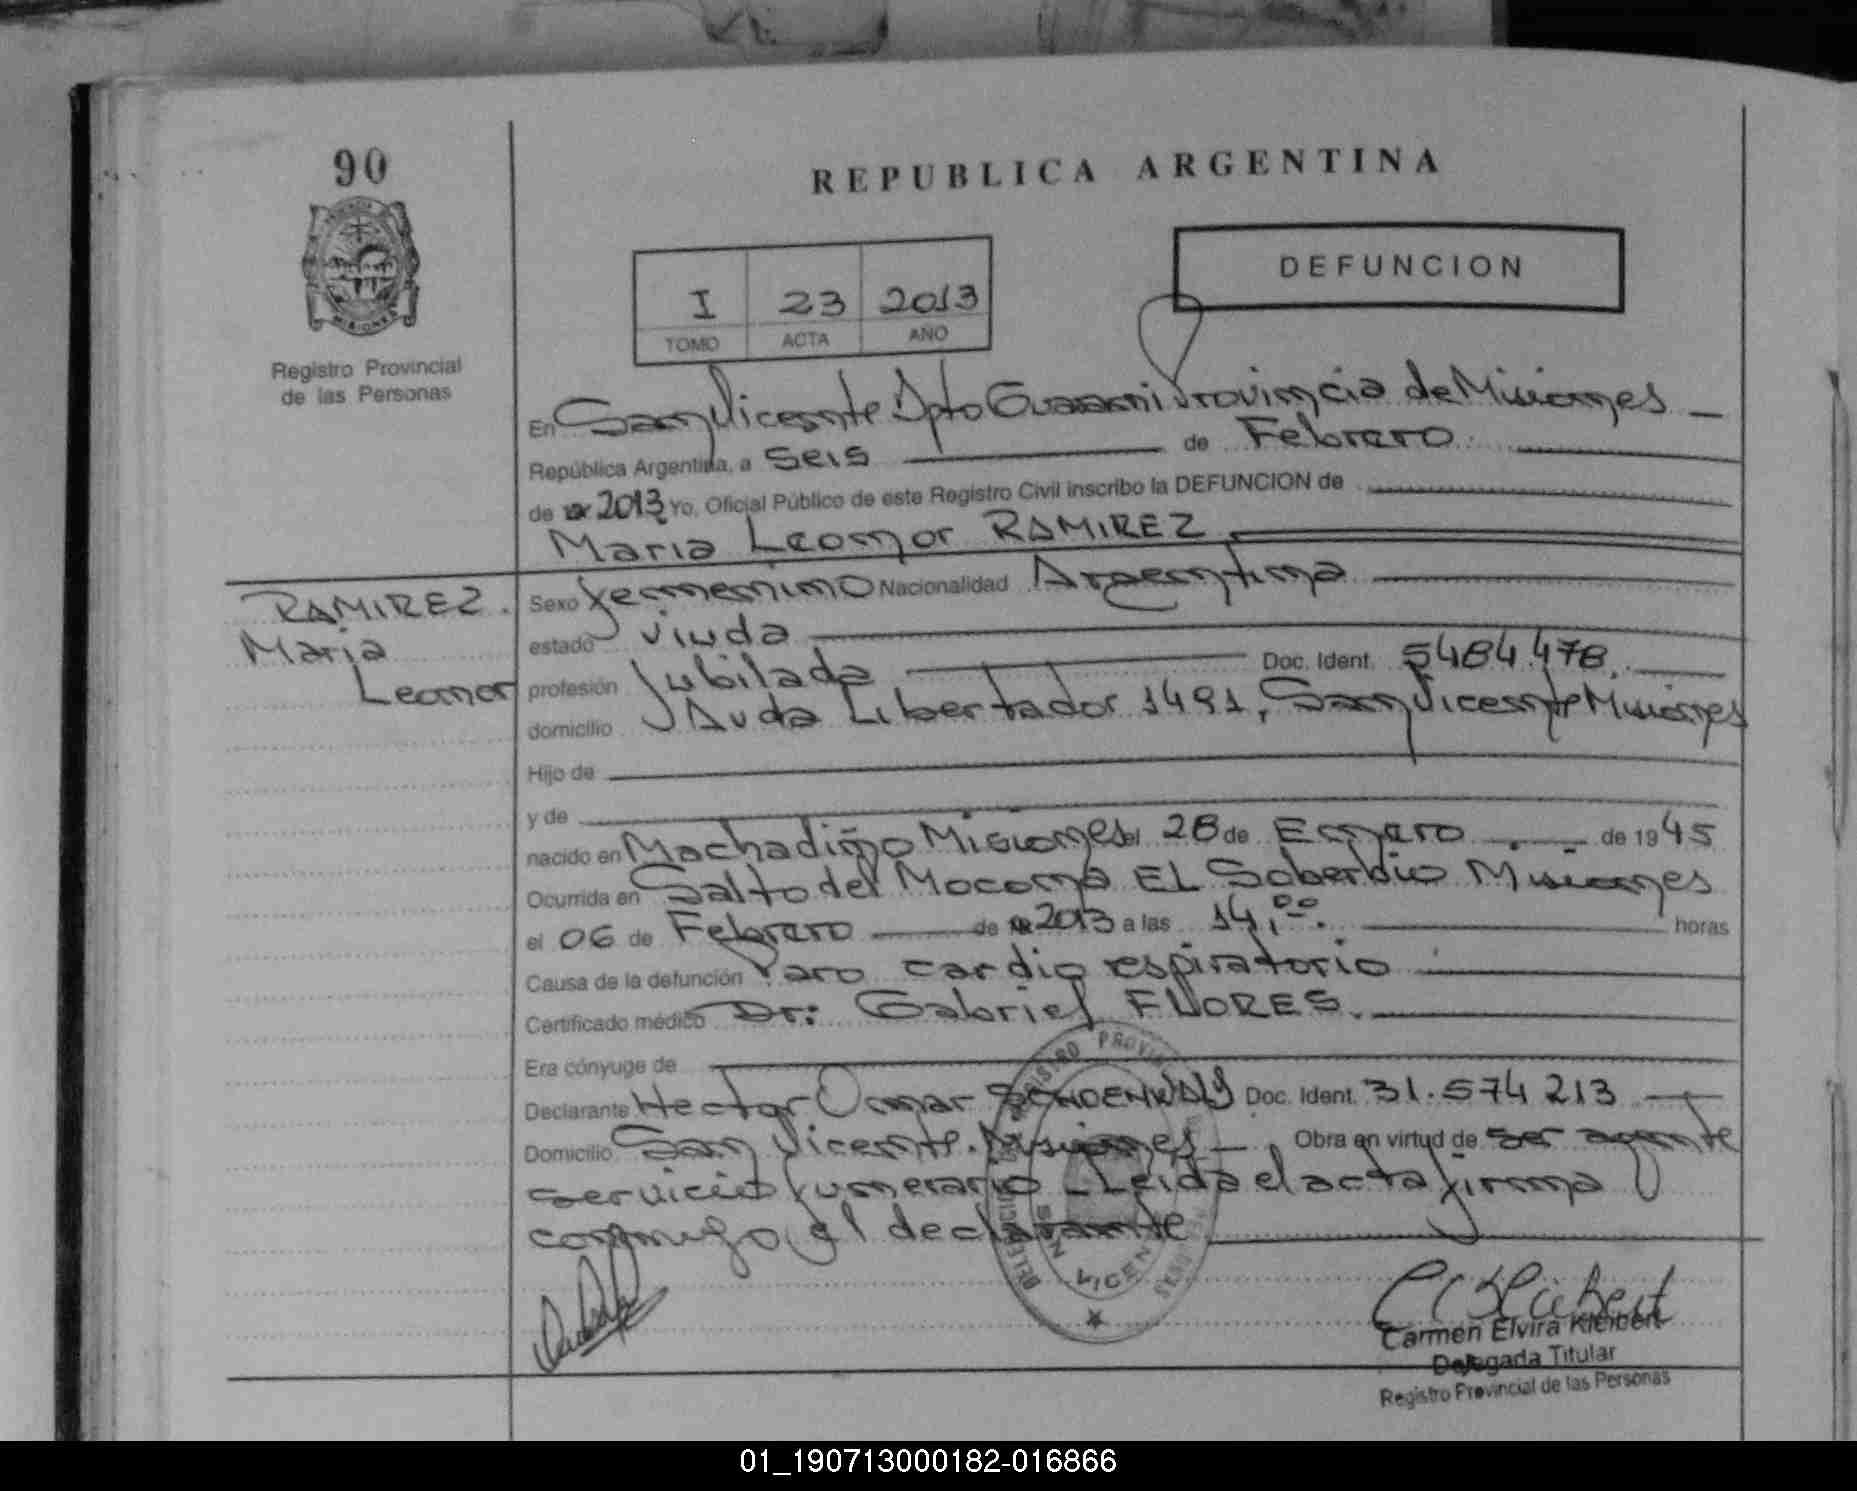 90
REPUBLICA ARGENTINA
DEFUNCION
I 23 2013
TOMO ACTA AÑO
MISIONES
Registro Provincial
de las Personas
En San Vicente Dpto Guarani Provincia de Misiones
República Argentina, a Seis de Febrero
de 2013 Yo, Oficial Público de este Registro Civil inscribo la DEFUNCION de
Maria Leonor RAMIREZ
RAMIREZ.
Maria
Leonor
Sexo femenino Nacionalidad Argentina
estado viuda
profesión Jubilada Doc. Ident. 5484.478.
domicilio Avda Libertador 1491, San Vicente Misiones
Hijo de
y de
nacido en Machadiño Misiones el 28 de Enero de 1945
Ocurrida en Salto del Mocona EL Soberbio Misiones
el 06 de Febrero de 2013 a las 14,00. horas
Causa de la defunción Paro cardio respiratorio
Certificado médico Dr: Gabriel FLORES.
Era cónyuge de
Declarante Hector Omar Doc. Ident. 31.574 213
Domicilio San Vicente. Misiones Obra en virtud de ser agente
servicio funerario - Leida el acta firma
conmigo el declarante
Carmen Elvira Kleibert
Delegada Titular
Registro Provincial de las Personas
01_190713000182-016866